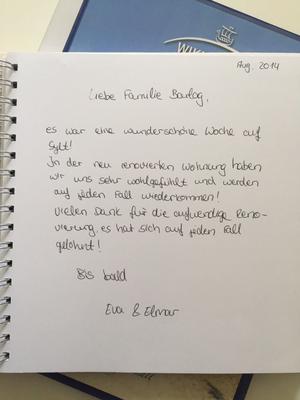 WIKI
Aug. 2014
Liebe Familie Barlag,
es war eine wunderschöne Woche auf
Sylt!
In der neu renovierten Wohnung haben
wir uns sehr wohlgefühlt und werden
auf jeden Fall wiederkommen!
Vielen Dank für die aufwendige Reno-
vierung, es hat sich auf jeden Fall
gelohnt!
Bis bald
Eva & Elmar